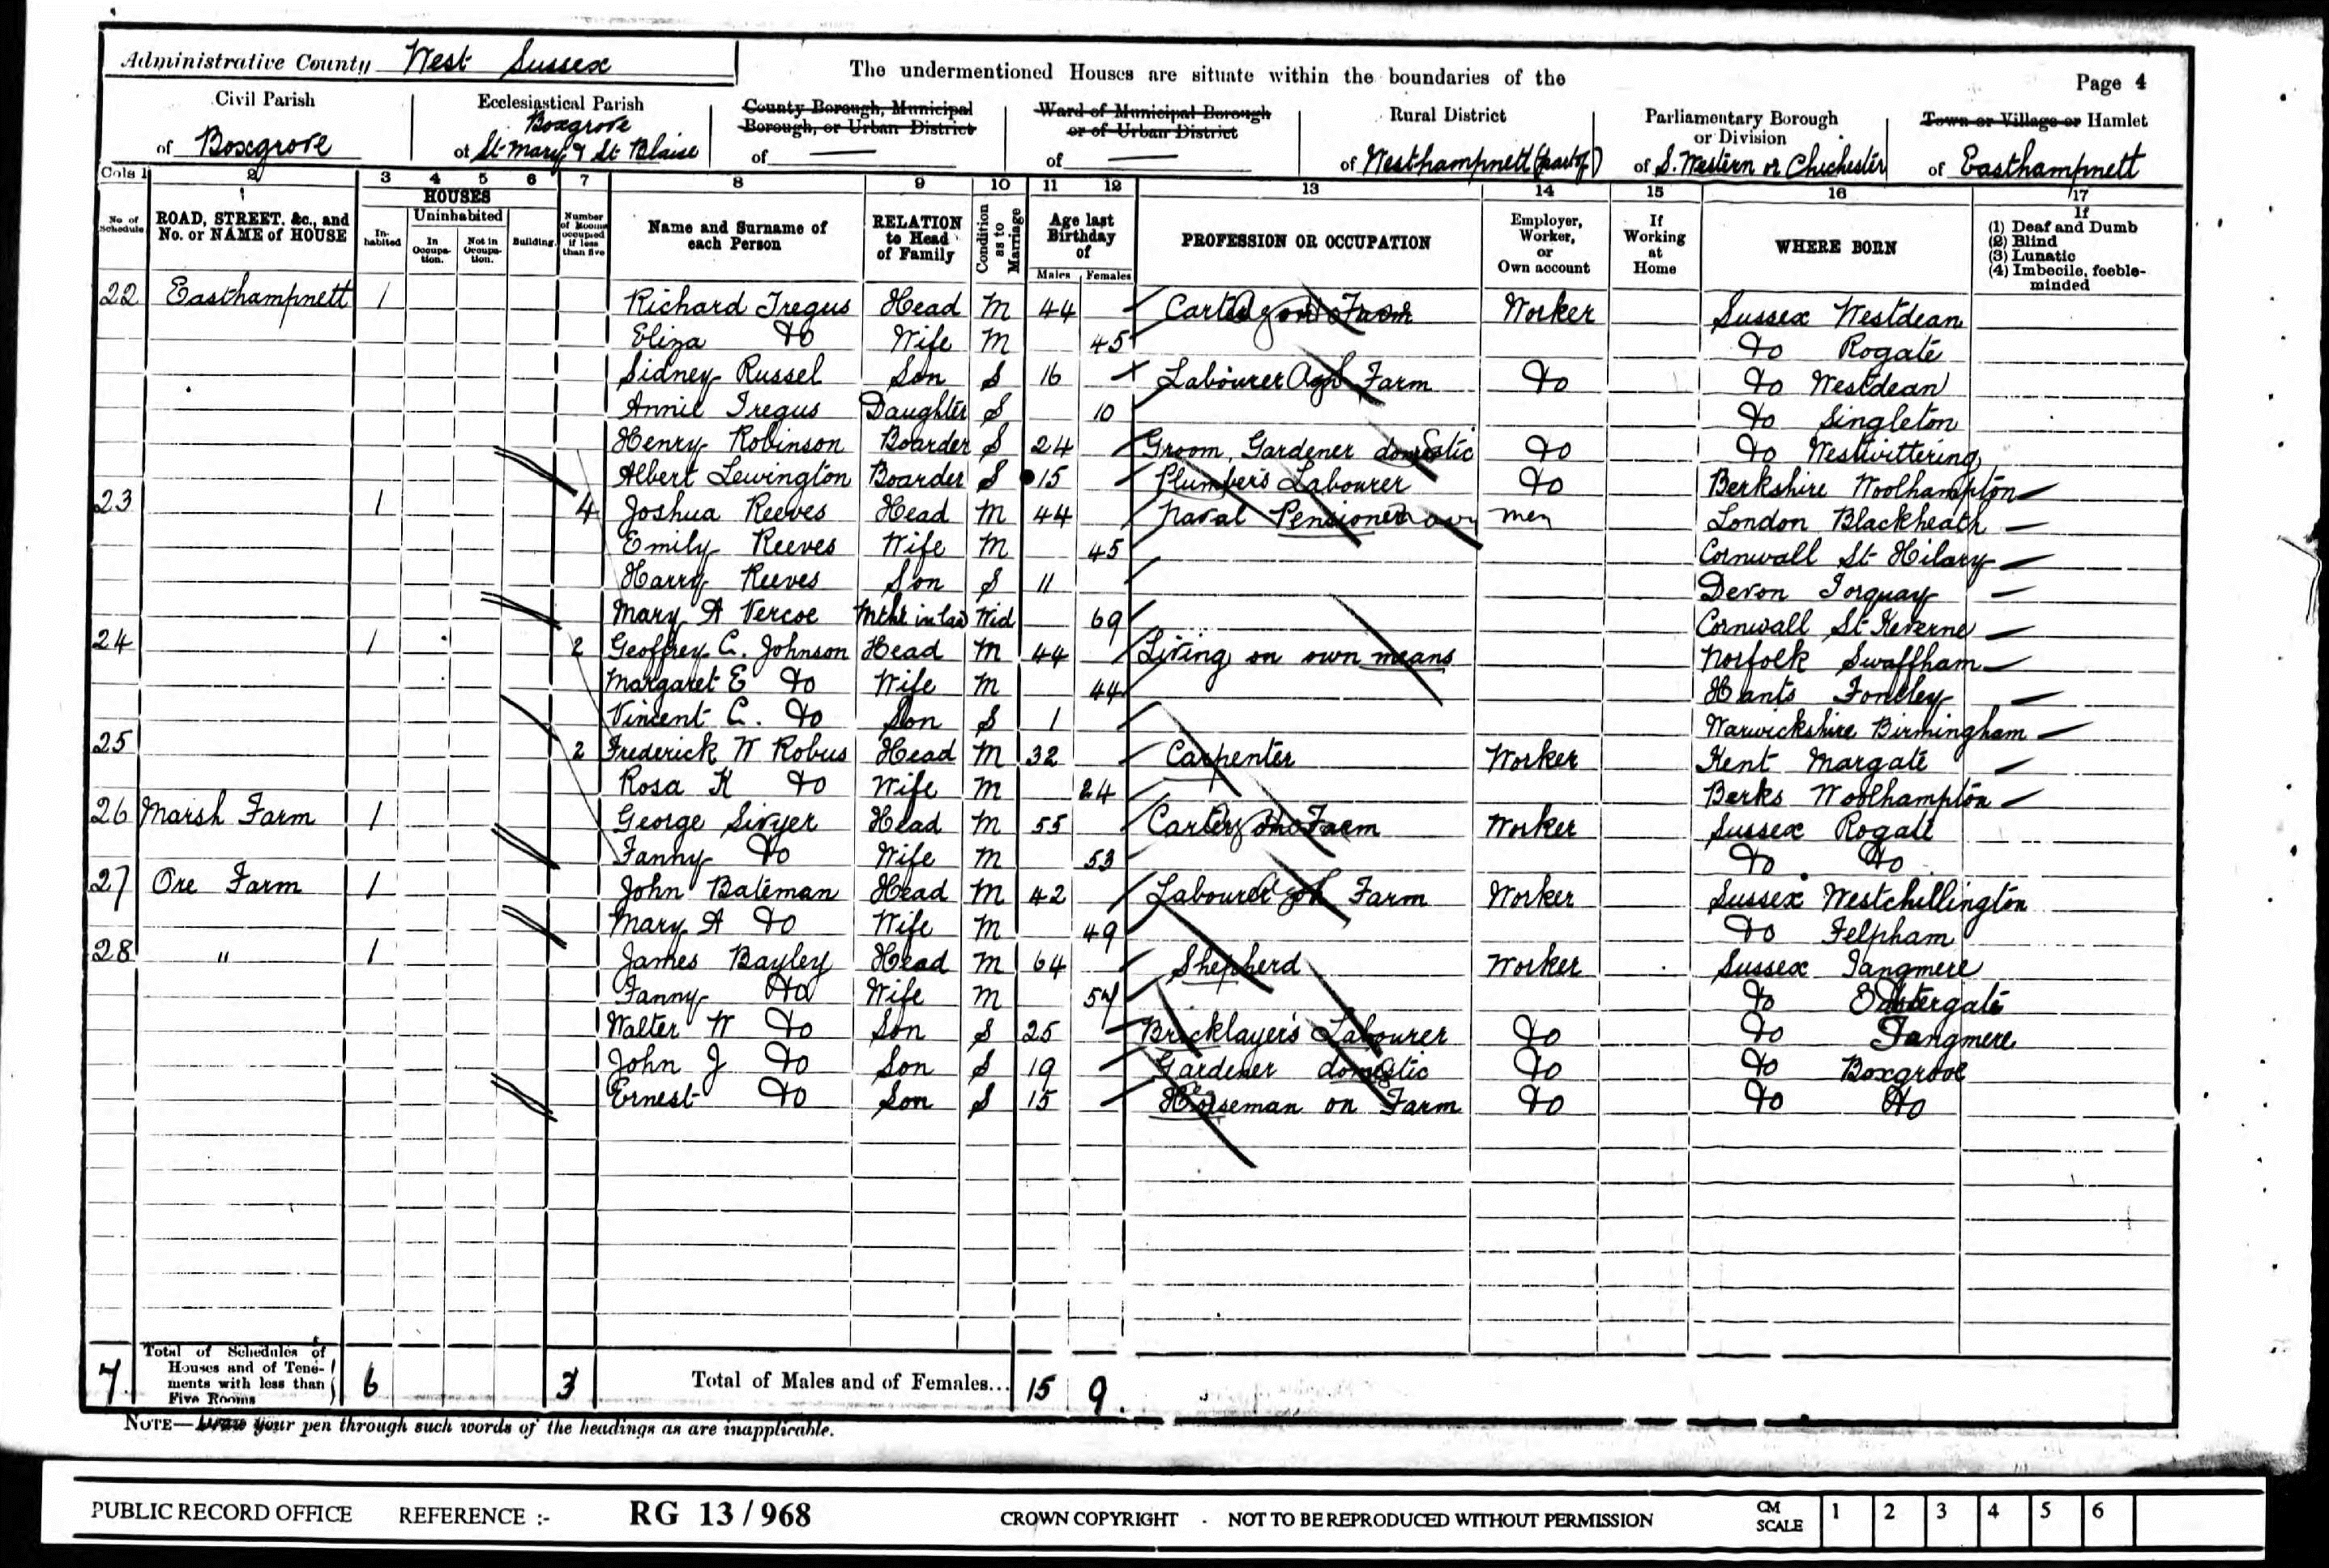 Administrative County West Sussex
The undermentioned Houses are situate within the boundaries of the
Page 4
Civil Parish of Boxgrove
Ecclesiastical Parish of Boxgrove St Mary & St Blaise
County Borough, Municipal Borough, or Urban District of —
Ward of Municipal Borough or of Urban District of —
Rural District of Westhampnett (part of)
Parliamentary Borough or Division of S. Western or Chichester
Town or Village or Hamlet of Easthampnett
Cols 1 2 3 4 5 6 7 8 9 10 11 12 13 14 15 16 17
No. of Schedule
ROAD, STREET, &c., and No. or NAME of HOUSE
HOUSES
Inhabited
Uninhabited
In Occupation.
Not in Occupation.
Building.
Number of Rooms occupied if less than five
Name and Surname of each Person
RELATION to Head of Family
Condition as to Marriage
Age last Birthday of
Males Females
PROFESSION OR OCCUPATION
Employer, Worker, or Own account
If Working at Home
WHERE BORN
If
(1) Deaf and Dumb
(2) Blind
(3) Lunatic
(4) Imbecile, feeble-minded
22 Easthampnett 1 Richard Tregus Head M 44 Carter on Farm Worker Sussex Westdean
Eliza Do Wife M 45 Do Rogate
Sidney Russel Son S 16 Labourer Agl Farm Do Do Westdean
Annie Tregus Daughter S 10 Do Singleton
Henry Robinson Boarder S 24 Groom, Gardener domestic Do Do Westwittering
Albert Lewington Boarder S 15 Plumber's Labourer Do Berkshire Woolhampton
23 1 4 Joshua Reeves Head M 44 Naval Pensioner London Blackheath
Emily Reeves Wife M 45 Cornwall St Hilary
Harry Reeves Son S 11 Devon Torquay
Mary A Vercoe Mthr in law Wid 69 Cornwall St Keverne
24 1 2 Geoffrey C. Johnson Head M 44 Living on own means Norfolk Swaffham
Margaret E Do Wife M 44 Hants Fontley
Vincent C. Do Son S 1 Warwickshire Birmingham
25 2 Frederick W Robus Head M 32 Carpenter Worker Kent Margate
Rosa K Do Wife M 24 Berks Woolhampton
26 Marsh Farm 1 George Sivyer Head M 55 Carter on Farm Worker Sussex Rogate
Fanny Do Wife M 53 Do Do
27 Ore Farm 1 John Bateman Head M 42 Labourer Agl Farm Worker Sussex Westchillington
Mary A Do Wife M 49 Do Felpham
28 " 1 James Bayley Head M 64 Shepherd Worker Sussex Tangmere
Fanny Do Wife M 57 Do Eastergate
Walter W Do Son S 25 Bricklayer's Labourer Do Do Tangmere
John J Do Son S 19 Gardener domestic Do Do Boxgrove
Ernest Do Son S 15 Horseman on Farm Do Do Do
7 Total of Schedules of Houses and of Tenements with less than Five Rooms 6 3 Total of Males and of Females... 15 9
NOTE—Draw your pen through such words of the headings as are inapplicable.
PUBLIC RECORD OFFICE REFERENCE :- RG 13 / 968 CROWN COPYRIGHT - NOT TO BE REPRODUCED WITHOUT PERMISSION CM SCALE 1 2 3 4 5 6